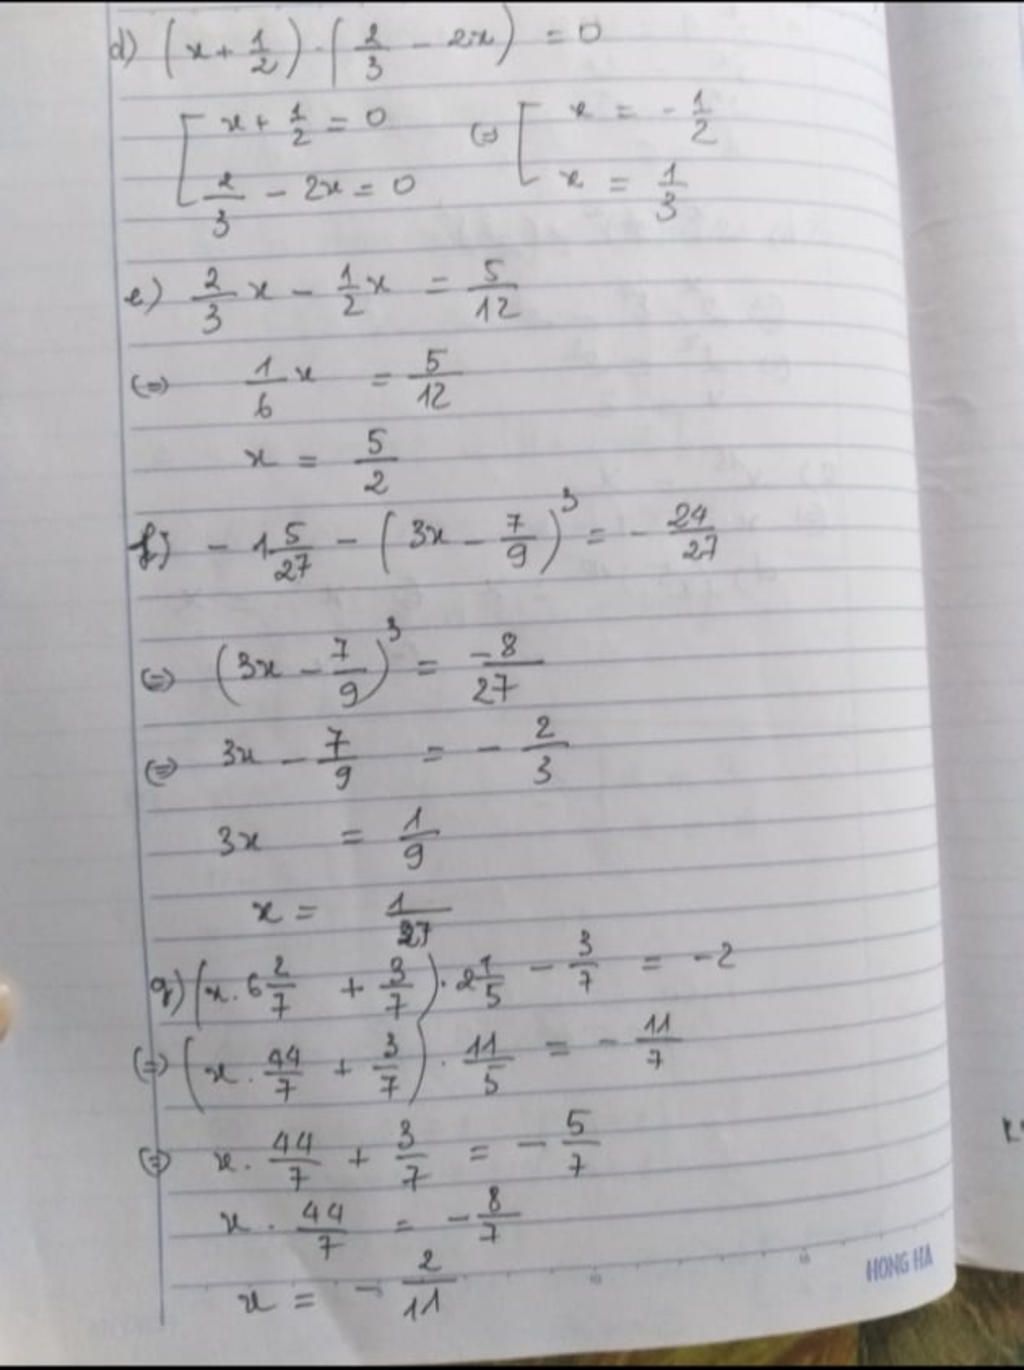 d) (x + 1/2) . (2/3 - 2x) = 0
[ x + 1/2 = 0 (=) [ x = - 1/2
2/3 - 2x = 0 x = 1/3
e) 2/3 x - 1/2 x = 5/12
(=) 1/6 x = 5/12
x = 5/2
f) - 1 5/27 - (3x - 7/9)^3 = - 24/27
(=) (3x - 7/9)^3 = -8/27
(=) 3x - 7/9 = - 2/3
3x = 1/9
x = 1/27
g) (x . 6 2/7 + 3/7) . 2 1/5 - 3/7 = -2
(=) (x . 44/7 + 3/7) . 11/5 = - 11/7
(=) x . 44/7 + 3/7 = - 5/7
x . 44/7 = - 8/7
x = - 2/11
HONG HA